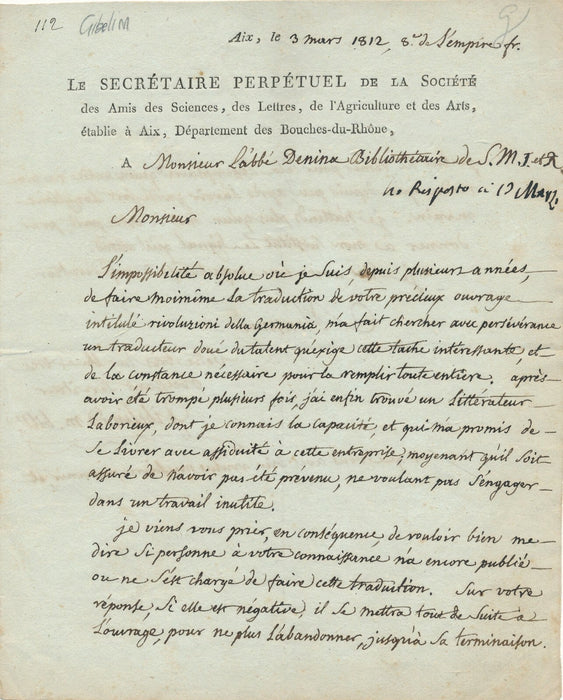 112 Gibelin
Aix, le 3 mars 1812, 8.e de l'empire fr.
LE SECRÉTAIRE PERPÉTUEL DE LA SOCIÉTÉ
des Amis des Sciences, des Lettres, de l'Agriculture et des Arts,
établie à Aix, Département des Bouches-du-Rhône,
A Monsieur L'abbé Denina Bibliothécaire de S. M. I. et R
Risposto a 19 Marz.
Monsieur
L'impossibilité absolue où je suis, depuis plusieurs années,
de faire moimême la traduction de votre précieux ouvrage
intitulé rivoluzioni della Germania, m'a fait chercher avec persévérance
un traducteur doué du talent qu'exige cette tache intéressante et
de la constance nécessaire pour la remplir toute entiere. après
avoir été trompé plusieurs fois, j'ai enfin trouvé un Littérateur
Laborieux, dont je connais la capacité, et qui m'a promis de
se livrer avec assiduité à cette entreprise, moyenant qu'il soit
assuré de n'avoir pas été prévenu, ne voulant pas s'engager
dans un travail inutile.
je viens vous prier, en conséquence, de vouloir bien me
dire si personne à votre connaissance n'a encore publié
ou ne s'est chargé de faire cette traduction. Sur votre
réponse, si elle est négative, il se mettra tout de suite à
L'ouvrage, pour ne plus l'abandonner, jusqu'à sa terminaison.